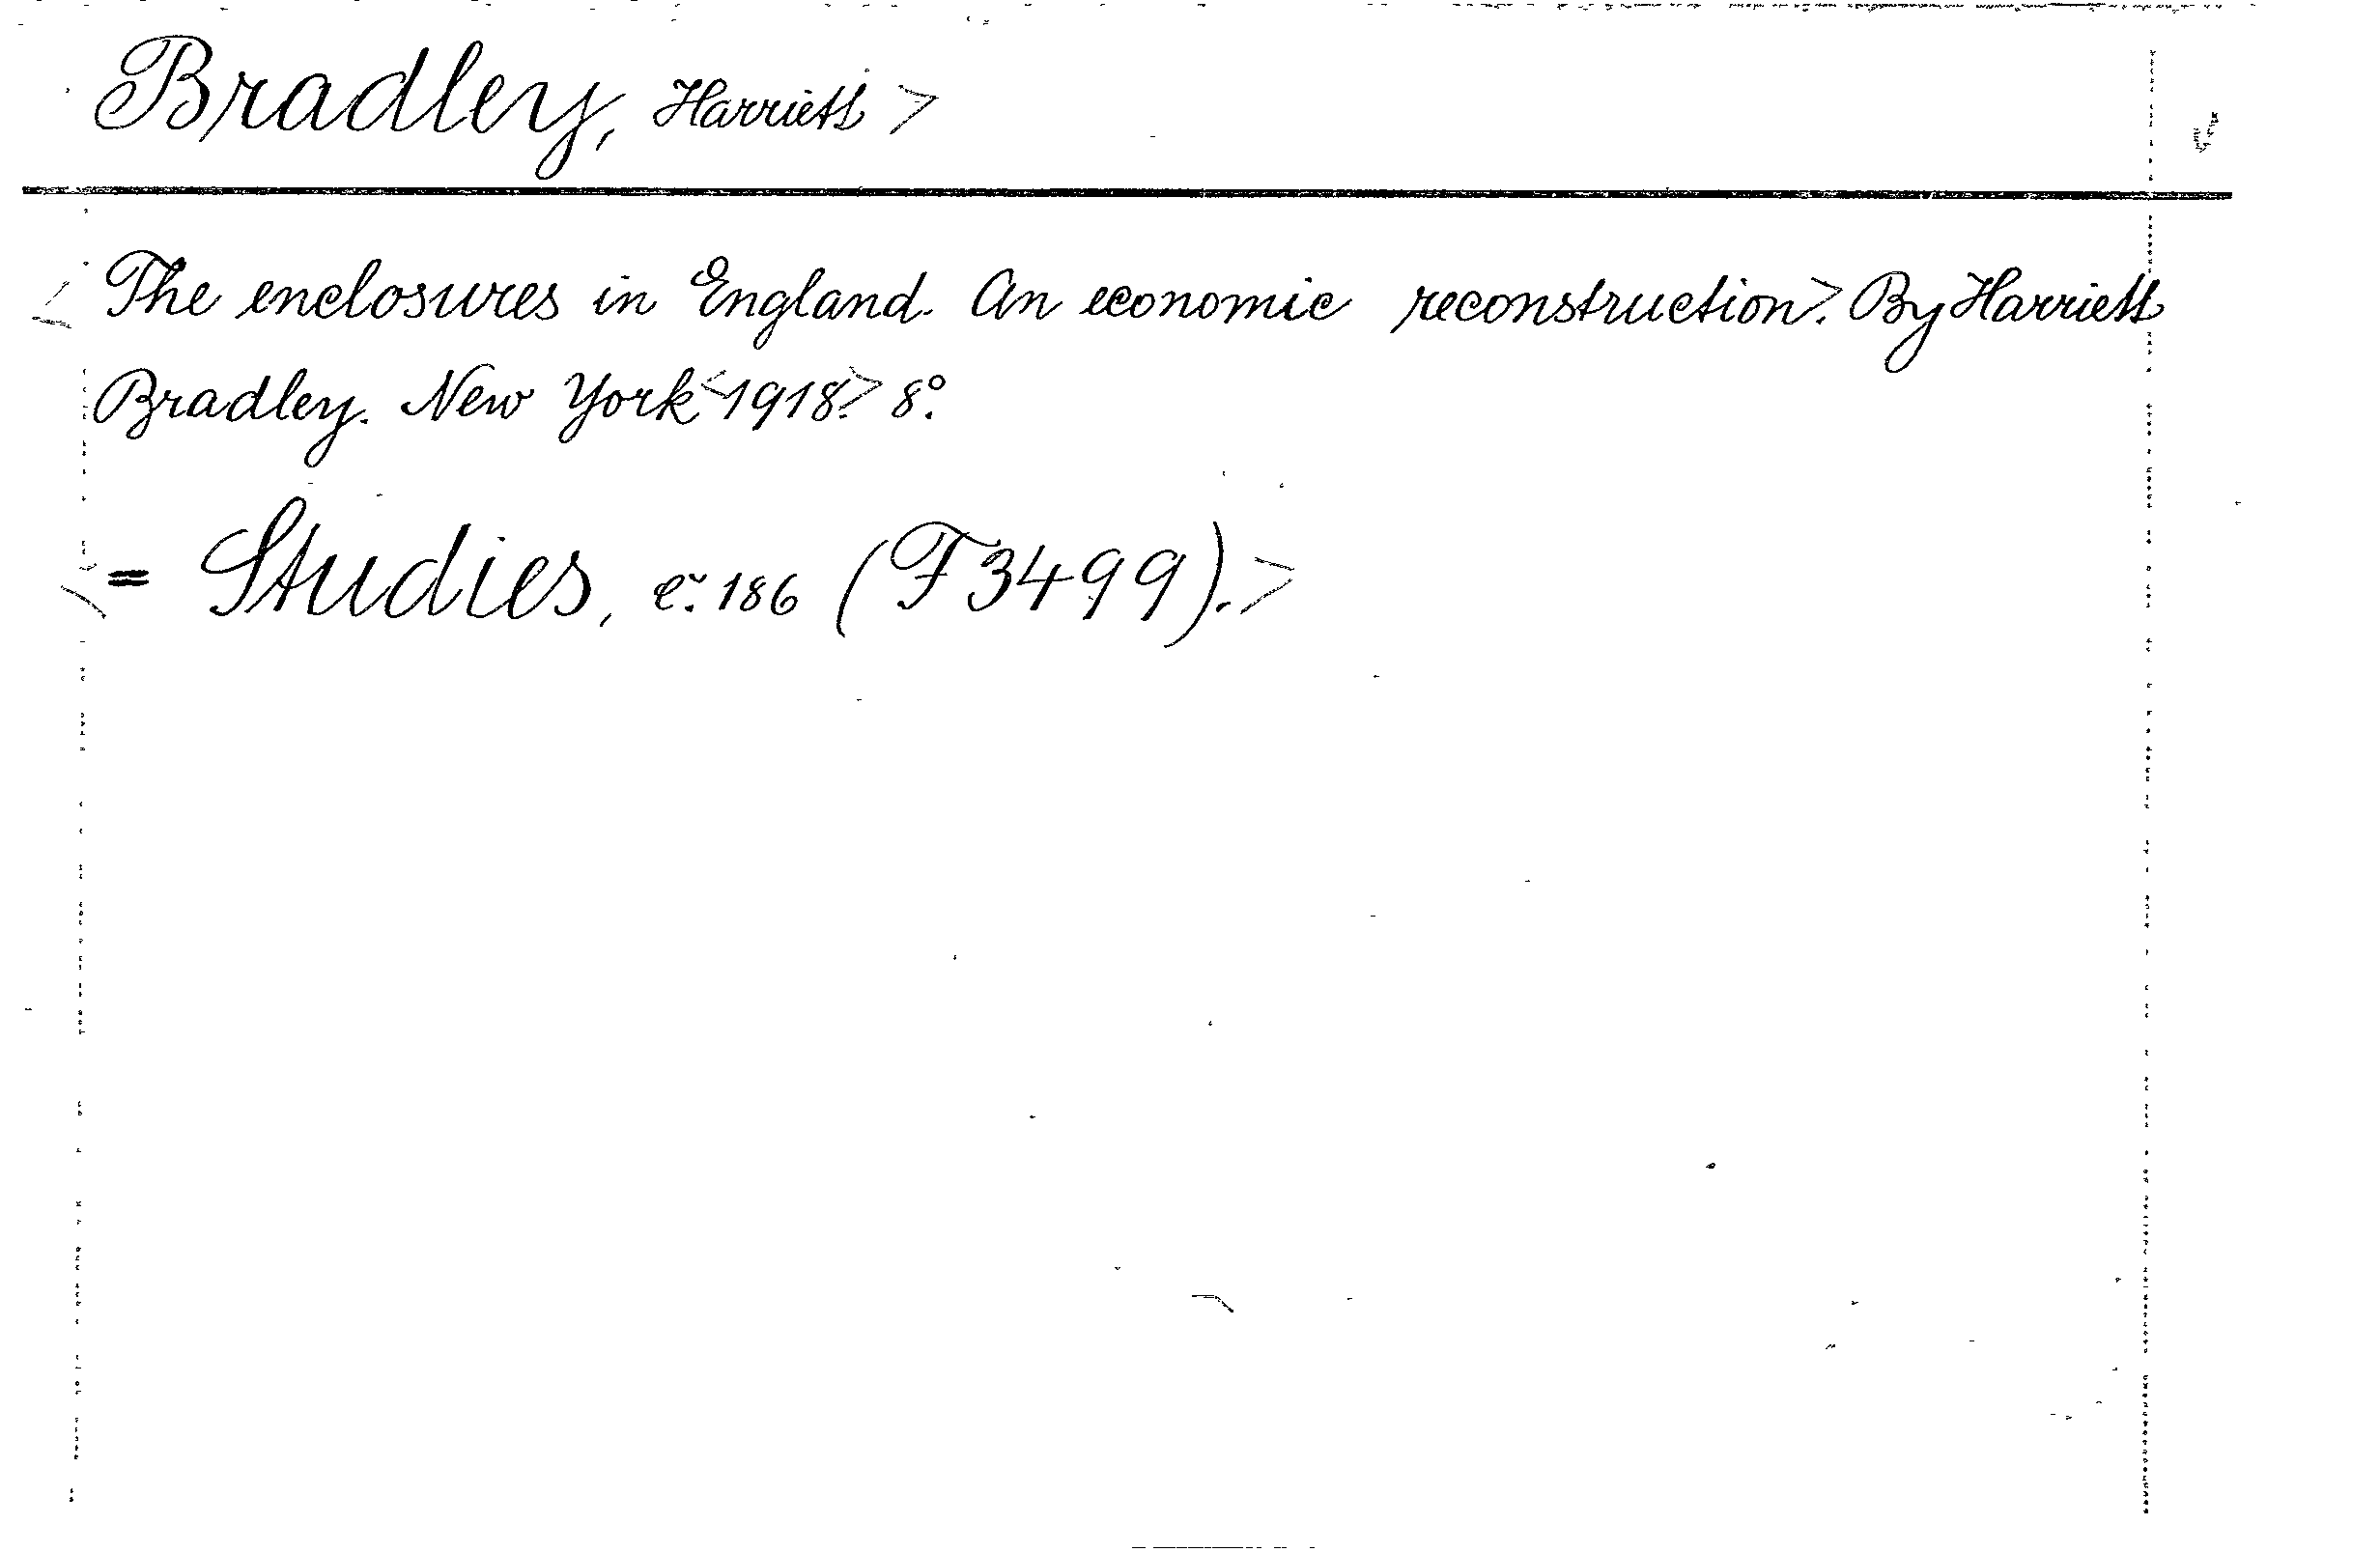 Bradley, Harriett >
< The enclosures in England. An economic reconstruction>. By Harriett
Bradley. New York <1918.> 8°.
= Studies, č. 186 (F 3499). >